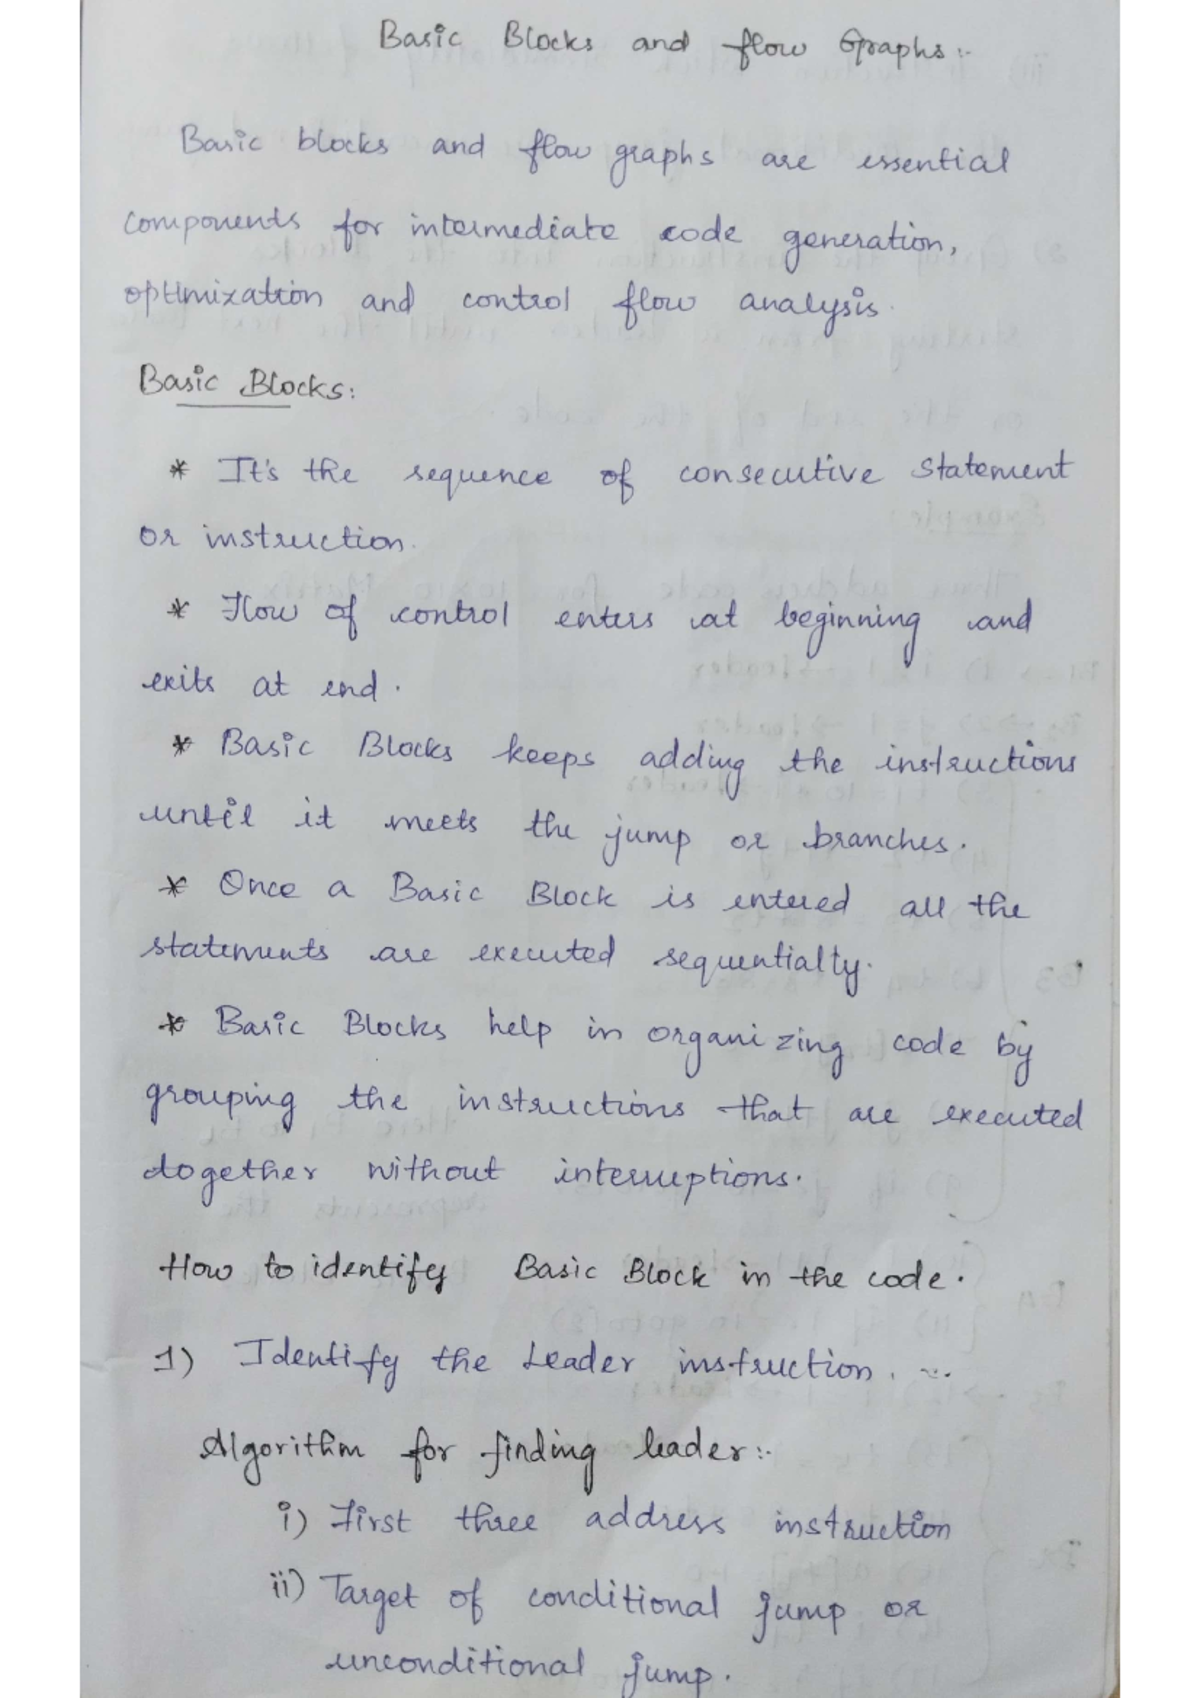 Basic Blocks and flow Graphs:-
Basic blocks and flow graphs are essential
components for intermediate code generation,
optimization and control flow analysis.
Basic Blocks:
* It's the sequence of consecutive statement
or instruction.
* Flow of control enters at beginning and
exits at end.
* Basic Blocks keeps adding the instructions
until it meets the jump or branches.
* Once a Basic Block is entered all the
statements are executed sequentialty.
* Basic Blocks help in organizing code by
grouping the instructions that are executed
together without interruptions.
How to identify Basic Block in the code.
1) Identify the Leader instruction.
Algorithm for finding leader:-
i) First three address instruction
ii) Target of conditional jump or
unconditional jump.